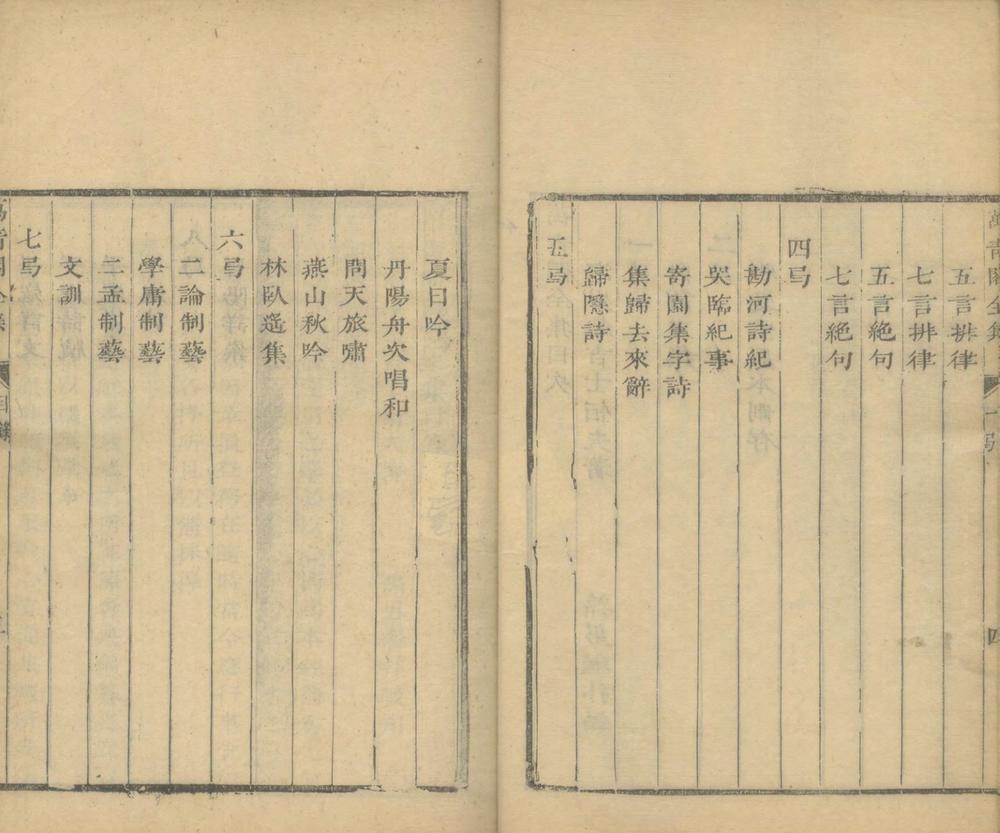 萬青閣全集
四
五言排律
七言排律
五言絶句
七言絶句
四弓
勘河詩紀
吳臨紀事
寄園集字詩
集歸去來辭
歸隱詩
五弓
夏日吟
丹陽舟次唱和
問天旅嘯
燕山秋吟
林臥遙集
六弓
二論制藝
學庸制藝
二孟制藝
文訓
七弓
目錄